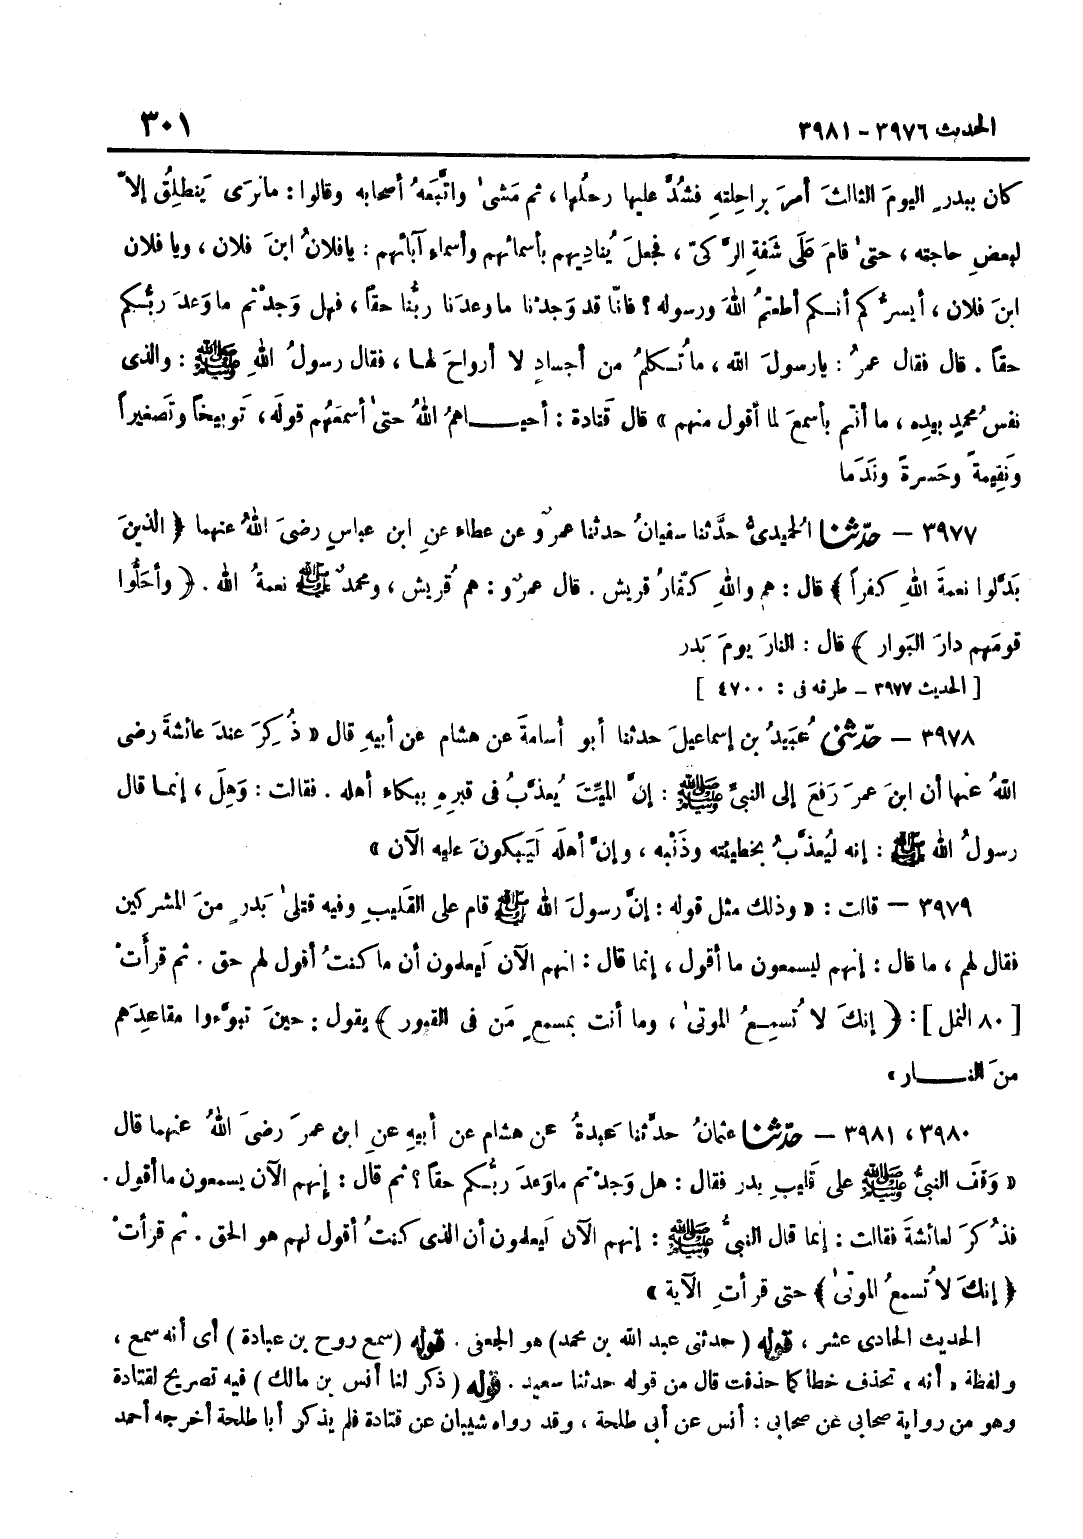 الحديث ٣٩٧٦ - ٣٩٨١
٣٠١
كان ببدرٍ اليومَ الثالثَ أمرَ براحِلتهِ فشُدَّ عليها رحلُها، ثم مَشىٰ واتَّبَعهُ أصحابه وقالوا: مانرَى يَنطلِقُ إلاّ
لبعضِ حاجته، حتىٰ قامَ عَلَى شَفةِ الرَّكىّ، فجعلَ يُناديِهم بأسمائهم وأسماء آبائهم: يافلانُ ابنَ فلان، ويا فلان
ابنَ فلان، أيسرُّكم أنـكم أطعتمُ اللهَ ورسوله؟ فانّا قد وَجدْنا ماوعدَنا ربُّنا حقاً، فهل وَجدْتم ماوَعدَ ربُّـكم
حقاً. قال فقال عمرُ: يارسولَ الله، ماتُـكلمُ من أجسادٍ لا أرواحَ لهـا، فقال رسولُ اللهِ ﷺ: والذى
نفسُ محمدٍ بيدِه، ما أنتم بأسمعَ لما أقول منهم» قال قَتادة: أحيـــاهمُ اللهُ حتىٰ أسمعَهُم قولَه، تَوبيخاً وتَصغيراً
ونَقِيمةً وحَسرةً ونَدَما
٣٩٧٧ - حدّثنا الُحميدىُّ حدَّثنا سفيانُ حدثنا عمرٌو عن عطاء عنِ ابن عباسٍ رضىَ اللهُ عنهما ﴿ الذينَ
بَدَّلوا نعمةَ اللهِ كفراً ﴾ قال: هم واللهِ كفّارُ قريش. قال عمرٌو: هم قُريش، ومحمدٌ ﷺ نعمةُ الله. ﴿ وأحَلُّوا
قومَهم دارَ البَوار ﴾ قال: النارَ يومَ بَدر
[ الحديث ٣٩٧٧ - طرفه فى: ٤٧٠٠ ]
٣٩٧٨ - حدّثنى عُبَيدُ بن إسماعيلَ حدثنا أبو أسامةَ عن هشام عن أبيهِ قال « ذُكِرَ عندَ عائشةَ رضى
اللهُ عنها أن ابنَ عمرَ رَفعَ إلى النبىِّ ﷺ: إنَّ الميِّتَ يُعذَّبُ فى قبرهِ ببكاء أهله. فقالت: وَهِلَ، إنمـا قال
رسولُ الله ﷺ: إنه ليُعذَّبُ بخطيئته وذَنْبه، وإنَّ أهلَه لَيَبكونَ عليه الآن »
٣٩٧٩ - قالت: « وذلك مثل قوله: إنَّ رسولَ الله ﷺ قام على القَليبِ وفيه قتلىٰ بَدرٍ منَ المشركين
فقال لهم، ما قال: إنهم ليسمعون ما أقول، إنما قال: انهم الآن لَيعلمون أن ماكنتُ أقول لهم حق. ثم قرأَتْ
[ ٨٠ النمل ]: ﴿ إنكَ لا تُسمِـعُ الموتىٰ، وما أنت بمسمعٍ مَن فى القبور ﴾ يقول: حينَ تبوَّءوا مقاعدَهم
منَ النــــار »
٣٩٨٠، ٣٩٨١ - حدّثنا عثمانُ حدَّثنا عَبدةُ عن هشام عن أبيهِ عنِ ابن عمرَ رضىَ اللهُ عنهما قال
« وَقفَ النبىُّ ﷺ على قَليبِ بدر فقال: هل وَجدْتم ماوَعدَ ربُّـكم حقاً؟ ثم قال: إنهم الآن يسمعون ما أقول.
فذُكرَ لعائشةَ فقالت: إنما قال النبىُّ ﷺ: إنهم الآن لَيعلمون أن الذى كنتُ أقول لهم هو الحق. ثم قرأتْ
﴿ إنكَ لا تُسمعُ الموتىٰ ﴾ حتى قرأتِ الآية »
الحديث الحادى عشر، قوله (حدثنى عبد الله بن محمد) هو الجعفى. قوله (سمع روح بن عبادة) أى أنه سمع،
ولفظة «أنه» تحذف خطا كما حذفت قال من قوله حدثنا سعيد. قوله (ذكر لنا أنس بن مالك) فيه تصريح لقتادة
وهو من رواية صحابى عن صحابى: أنس عن أبى طلحة، وقد رواه شيبان عن قتادة فلم يذكر أبا طلحة أخرجه أحمد